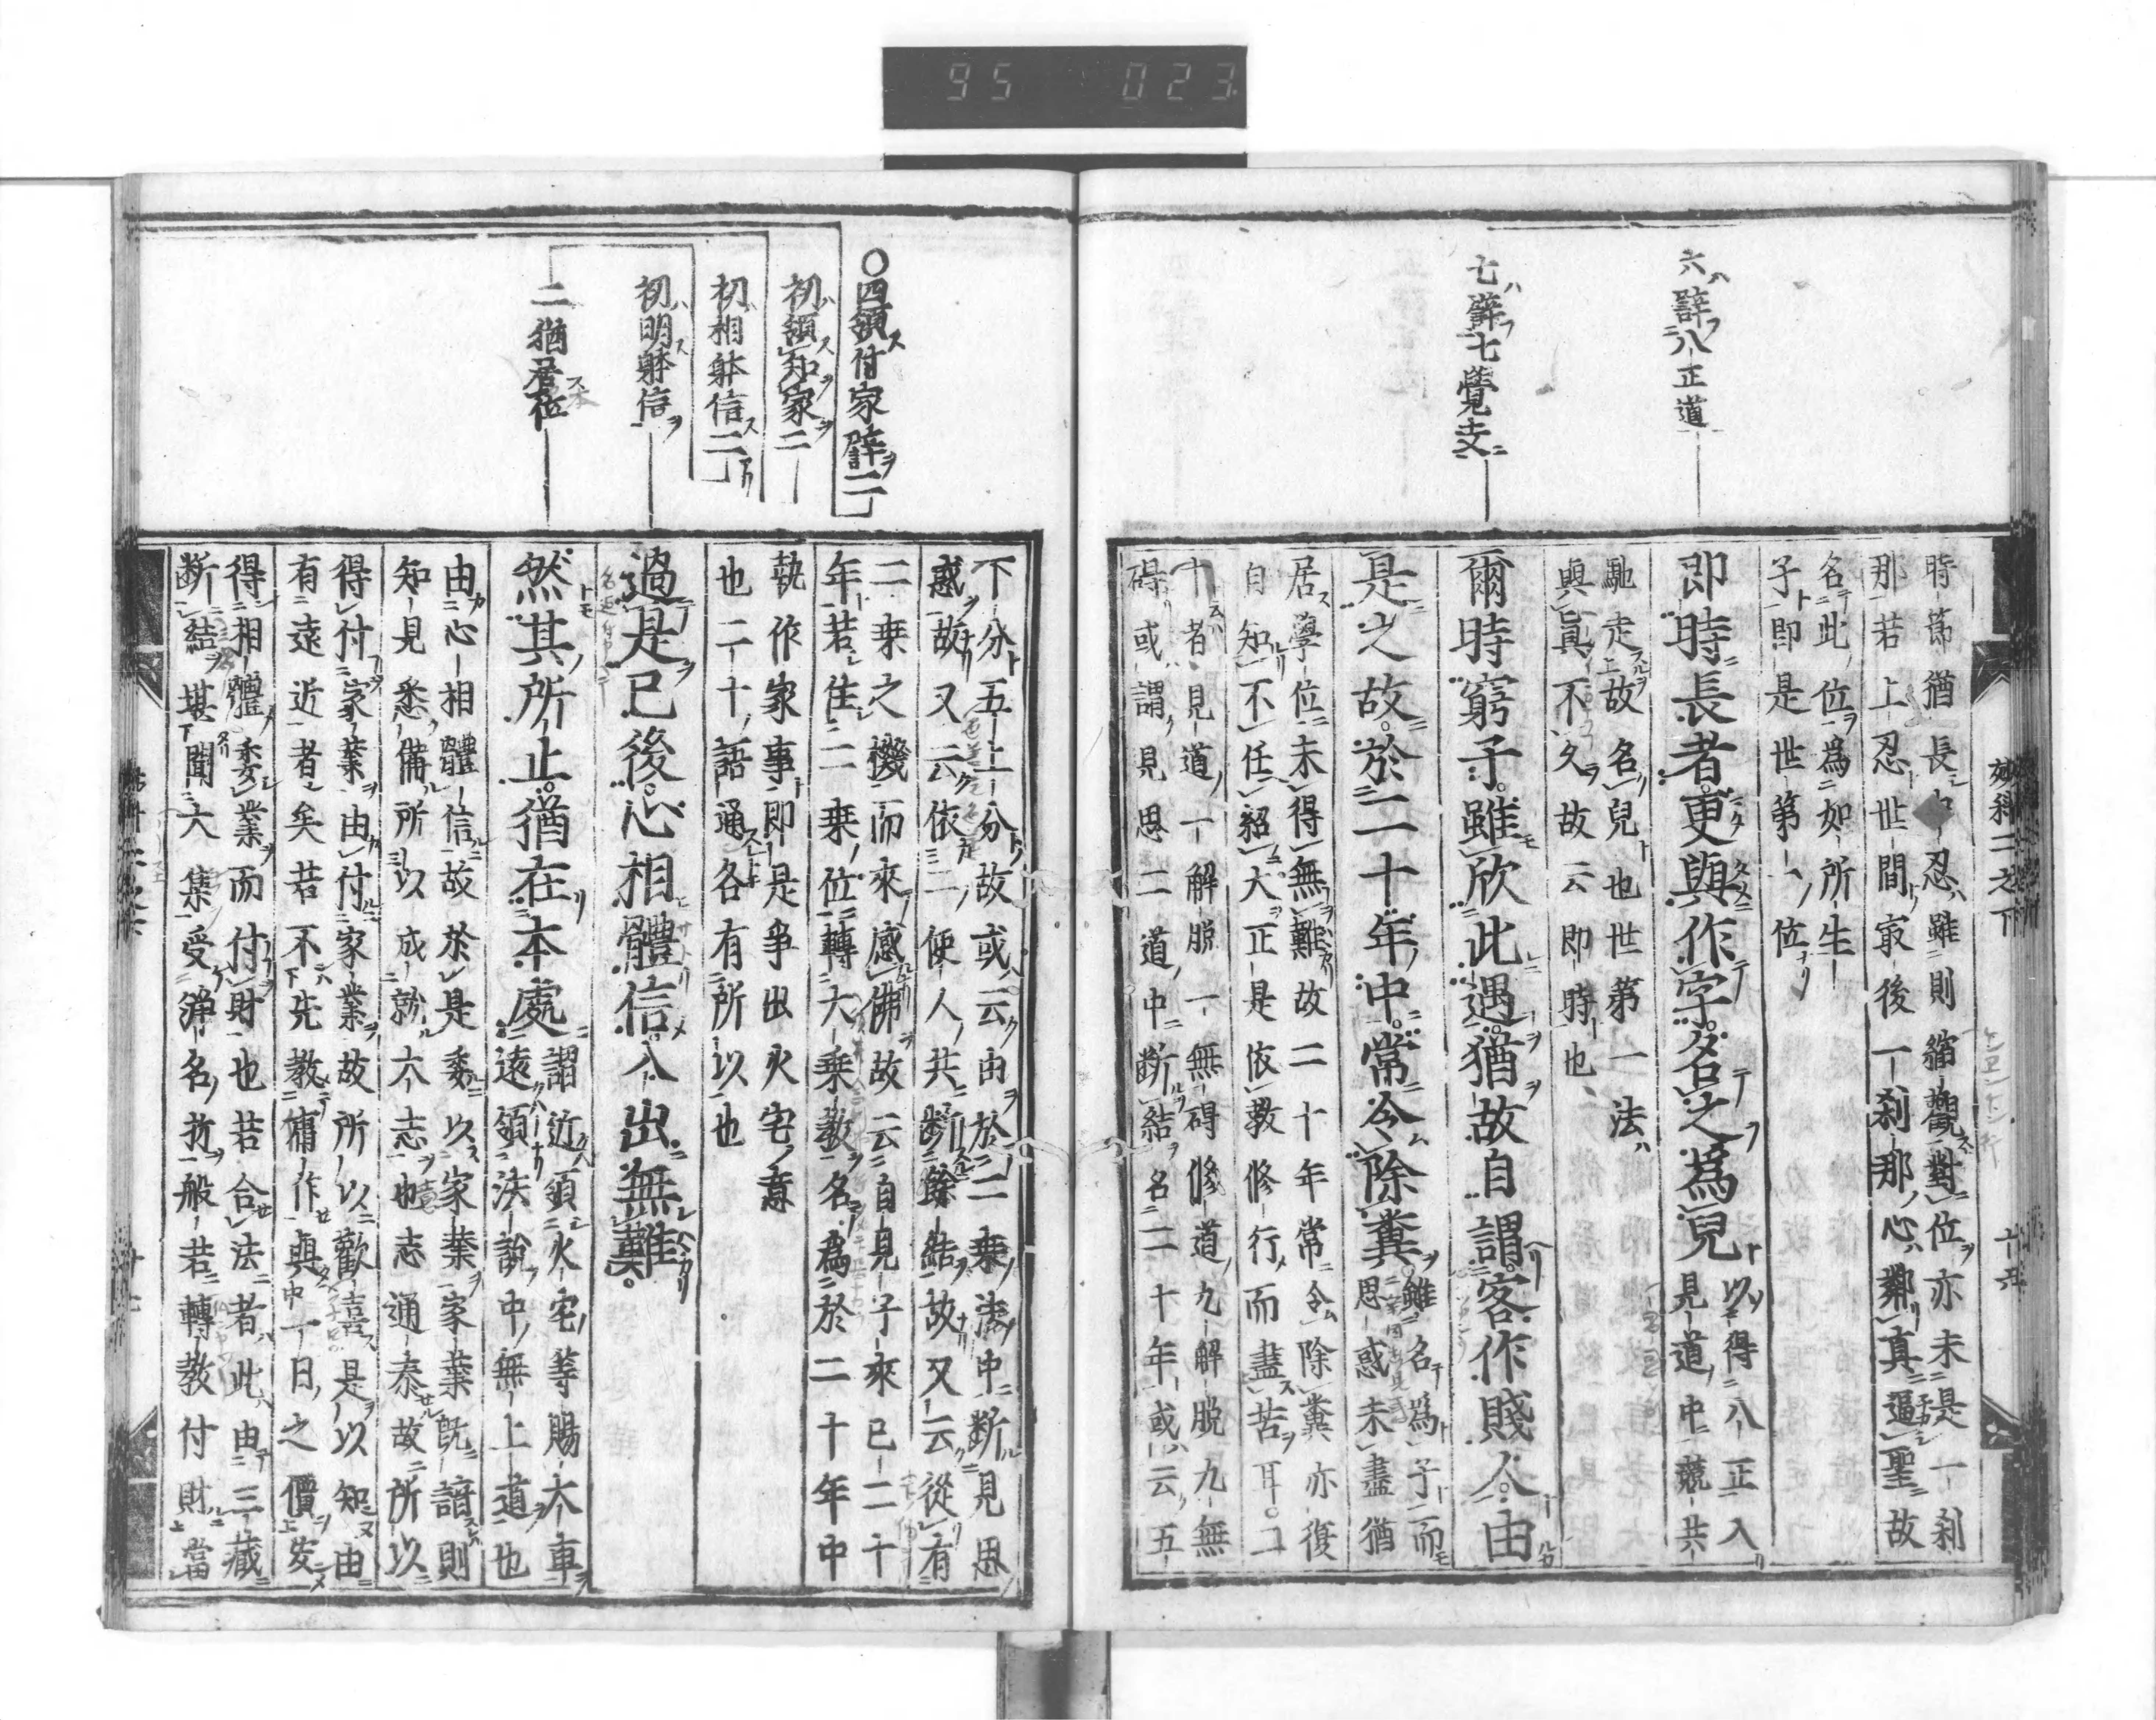 95 023
六譬八正道
七譬七覺支
時節猶長忍雖則縮觀對位亦未是一刹
那若上忍世間㝡後一刹那心鄰真逼聖故
名此位爲如所生
子即是世第一位
即時長者更與作字名之爲兒
以得八正入
見道中競共
馳走故名兒也世第一法
與真不久故云即時也
爾時窮子雖欣此遇猶故自謂客作賤人由
是之故於二十年中常令除糞
雖名爲子而
思惑未盡猶
居學位未得無難故二十年常令除糞亦復
自知不任紹大正是依教修行而盡苦耳
十者見道一解脱一無碍修道九解脱九無
碍或謂見思二道中斷結名二十年或云五
妙科二之下
〇四領付家譬二
初領知家二
初相躰信二
初明躰信
二猶居位
下分五上分故或云由於二乗法中断見思
惑故又云依二使人共断餘結故又云從有
二乗之機而來感佛故云自見子來已二十
年若住二乗位轉大乗教名爲於二十年中
執作家事即是爭出火宅意
也二十話通各有所以也
過是已後心相體信入出無難
然其所止猶在本處
謂近領火宅等賜大車
遠領法說中無上道也
由心相體信故於是委以家業家業既諳則
知見悉備所以成就六志也志通泰故所以
得付家業由付家業故所以歡喜是以知由
有遠近者矣若不先教傭作與中一日之價安
得相體委業而付財也若合法者此由三藏
断結堪聞大集受淨名於般若轉教付財當